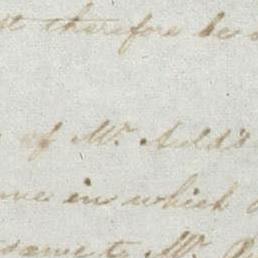 therefore be
of Mr. Auld's
in which
came to Mr.